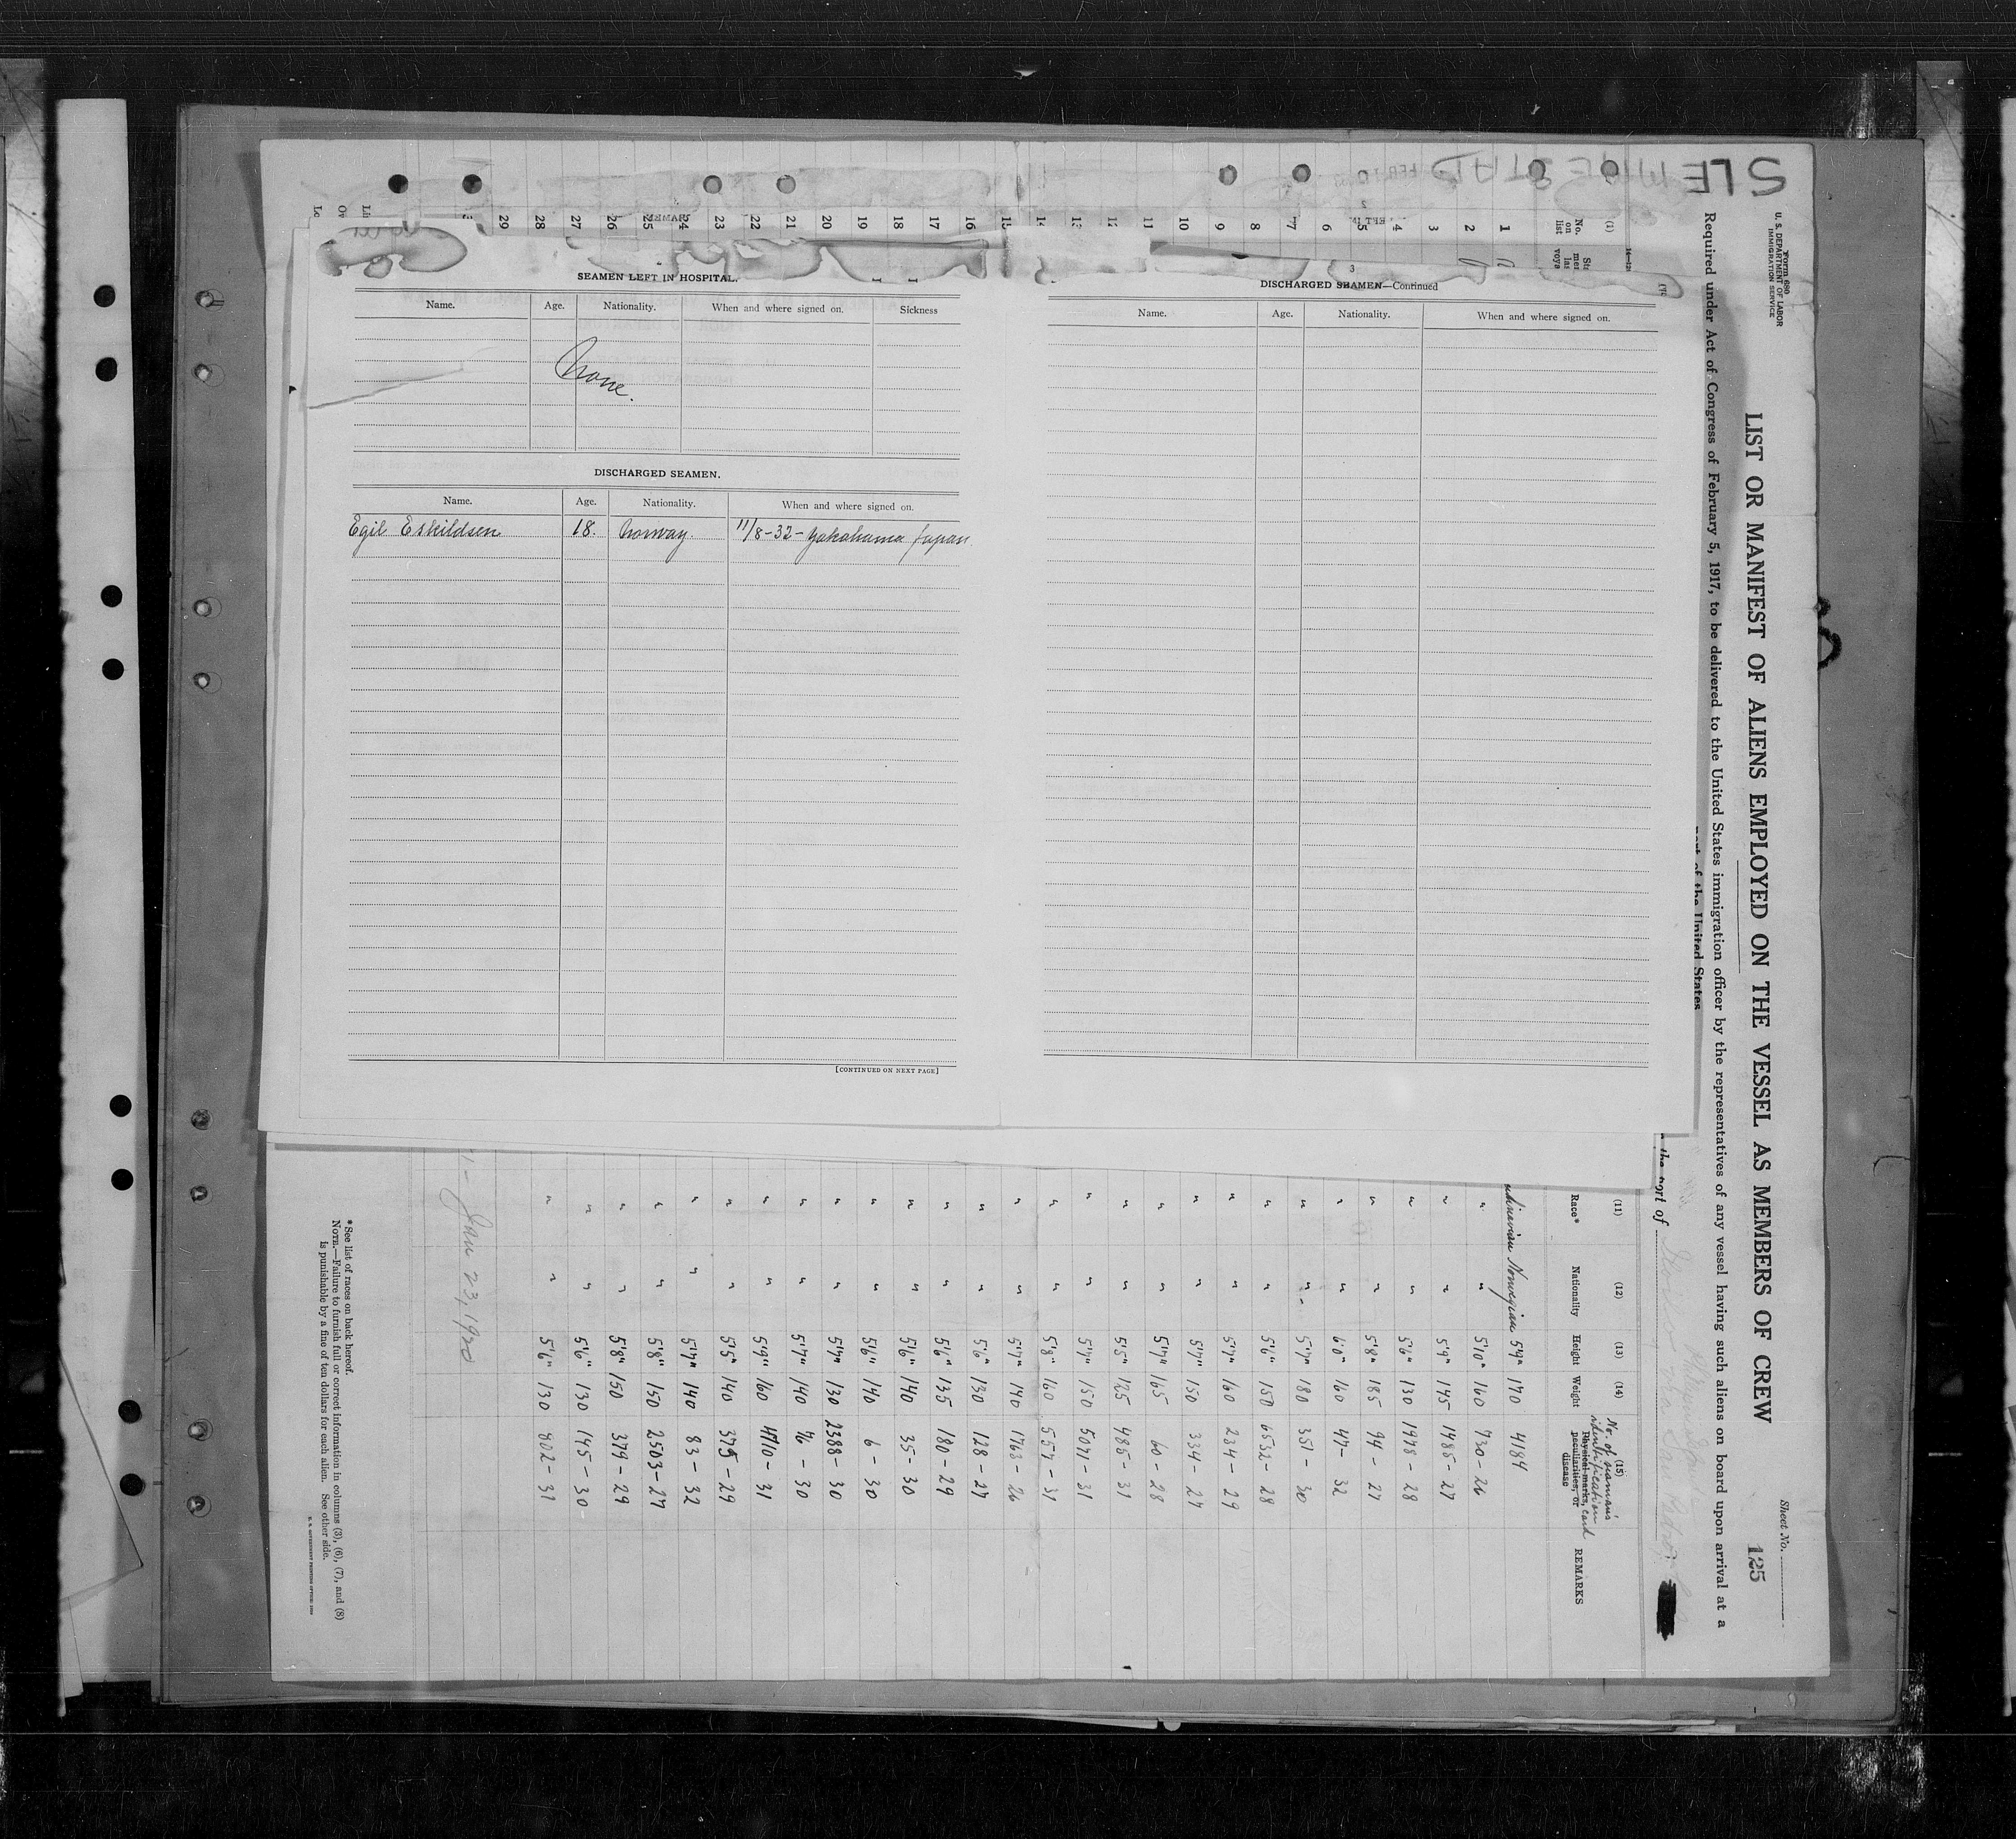 SEAMEN LEFT IN HOSPITAL.
Name. Age. Nationality. When and where signed on. Sickness
None.
DISCHARGED SEAMEN.
Name. Age. Nationality. When and where signed on.
Egil Eskildsen 18. Norway. 11/8-32- Yokohama Japan
[CONTINUED ON NEXT PAGE]
3
DISCHARGED SEAMEN—Continued
Name. Age. Nationality. When and where signed on.
Form 680
U. S. DEPARTMENT OF LABOR
IMMIGRATION SERVICE
Sheet No.
125
LIST OR MANIFEST OF ALIENS EMPLOYED ON THE VESSEL AS MEMBERS OF CREW
Required under Act of Congress of February 5, 1917, to be delivered to the United States immigration officer by the representatives of any vessel having such aliens on board upon arrival at a
port of the United States
the port of
(1) (11) (12) (13) (14) (15)
No. on list Race* Nationality Height Weight No. of seaman's identification card Physical marks, peculiarities, or disease REMARKS
1 Norwegian 5'9" 170 4184
2 " " 5'10" 160 730-26
3 " " 5'9" 145 1485-27
4 " " 5'6" 130 1978-28
5 " " 5'8" 185 94-27
6 " " 6'0" 160 47-32
7 " " 5'7" 180 351-30
8 " " 5'6" 150 6532-28
9 " " 5'7" 160 234-29
10 " " 5'7" 150 334-27
11 " " 5'7" 165 60-28
12 " " 5'5" 125 485-31
13 " " 5'7" 150 5071-31
14 " " 5'8" 160 557-31
15 " " 5'7" 140 1763-26
16 " " 5'6" 130 128-27
17 " " 5'6" 135 180-29
18 " " 5'6" 140 35-30
19 " " 5'6" 140 6-30
20 " " 5'7" 130 2388-30
21 " " 5'7" 140 76-30
22 " " 5'9" 160 4710-31
23 " " 5'5" 140 375-29
24 " " 5'7" 140 83-32
25 " " 5'8" 150 2503-27
26 " " 5'8" 150 379-29
27 " " 5'6" 130 145-30
28 " " 5'6" 130 802-31
29
Jan 23, 19
*See list of races on back hereof.
NOTE.—Failure to furnish full or correct information in columns (3), (6), (7), and (8)
is punishable by a fine of ten dollars for each alien. See other side.